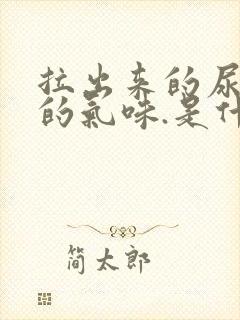 拉出来的尿
的氣味.是什
简太郎